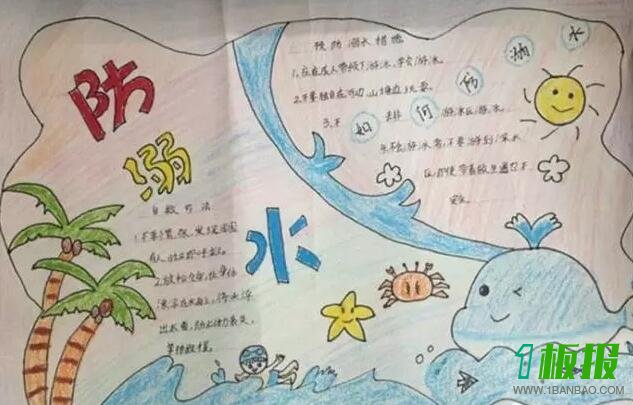 防
溺
水
如何防溺水
预防溺水措施
1.应在成人带领下游泳,学会游泳。
2.不要独自在河边、山塘边玩耍。
3.不 非游泳区游泳。
不会游泳者,不要游到深水
区,即使带着救生圈也不
安全。
自救方法
1.不要心慌,发现周围
有人时立即呼救。
2.放松全身,让身体
漂浮在水面上,待头浮
出水面,防止体力丧失,
等待救援。
1板报
WWW.1BANBAO.COM